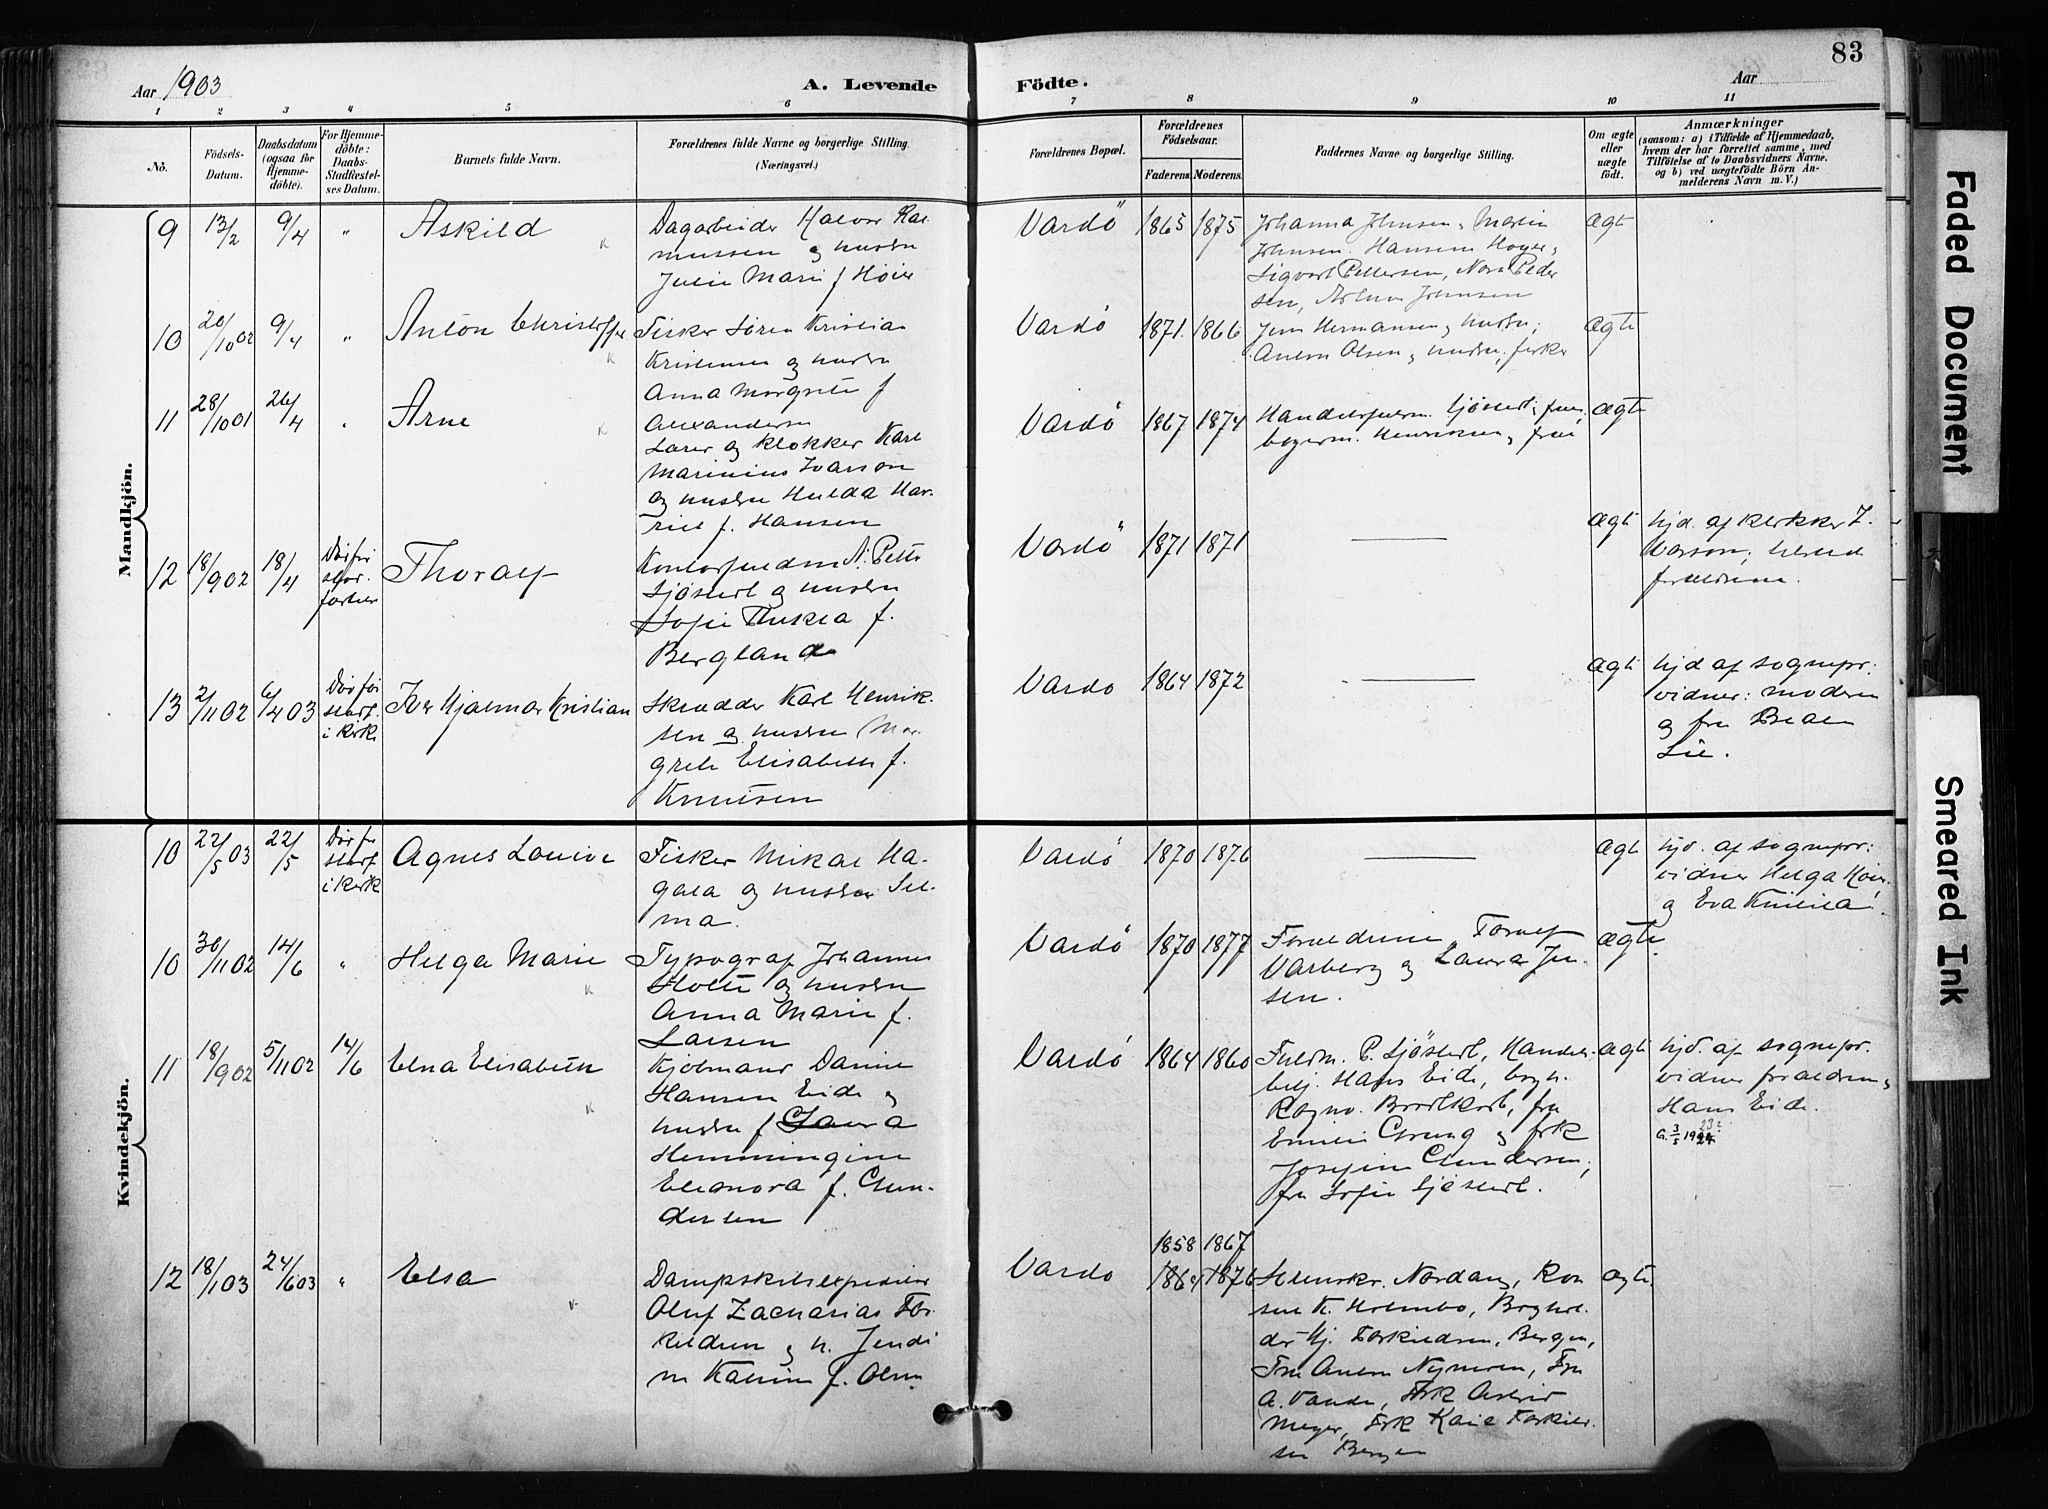 83
Aar 1903
A. Levende
Födte.
Aar
1 2 3 4 5 6 7 8 9 10 11
No.
Födsels-
Datum.
Daabsdatum
(ogsaa for
Hjemme-
döbte).
For Hjemme-
döbte:
Daabs-
Stadfæstel-
ses Datum.
Barnets fulde Navn.
Forældrenes fulde Navne og borgerlige Stilling.
(Næringsvei.)
Forældrenes Bopæl.
Forældrenes
Födselsaar.
Faderens. Moderens.
Faddernes Navne og borgerlige Stilling.
Om ægte
eller
uægte
födt.
Anmærkninger
(saasom: a) i Tilfælde af Hjemmedaab,
hvem der har forrettet samme, med
Tilföielse af to Daabsvidners Navne.
og b) ved uægtefödte Börn An-
melderens Navn m. V.)
Mandkjön.
9 13/2 9/4 " Askild
Dagarbeider Halvor Ras
mussen og hustru
Julie Marie f Høier
Vardö 1865 1875
Johanna Johnsen, Martin
Johnsen, Hansine Høyer,
Sigvart Pettersen, Nora Peder
sen, Johnsen
ægte
10 20/10 02 9/4 " Anton Christoffer
Fisker Søren Kristian
Kristensen og hustru
Anna Margrete f
Alexandersen
Vardö 1871. 1866
Jens Hermansen og hustru;
Anton Olsen og hustru, fisker
ægte
11 28/10 01 26/4 Arne
Lærer og klokker Karl
Marinius Ivarson
og hustru Hulda Har-
riet f. Hansen
Vardö 1867 1874
Sjöstedt og frue,
Henriksen og frue
ægte
12 18/9 02 18/4 Død før
stadf.
Thoralf
N. Petter
Sjöstedt og hustru
Sofie Thukea f.
Bergland
Vardö 1871 1871
ægte
hjd. af klokker I.
varson; tilsted
forældrene.
13 2/11 02 6/4 03 Død før
stadf.
i kirke
Iver Hjalmar Kristian
Skrædder Karl Henrik-
sen og hustru Mar-
grete Elisabeth f.
Knutsen
Vardø 1864 1872
ægte
hjd af sognepr:
vidner: moderen
og fru
Lie.
Kvindekjön.
10 22/5 03 22/5 Død før
stadf
i kirke
Agnes Louise
Fisker Mikal Ha-
gala og hustru Sel-
ma.
Vardö 1870 1876
ægte
hjd. af sognepr:
vidner Helga Høier
og Eva
10 30/11 02 14/6 " Helga Marie
Typograf Johannes
Holte og hustru
Anna Marie f.
Larsen
Vardö 1870 1877
Forældrene, Toralf
Varberg og Laura Jen-
sen.
ægte.
11 18/9 02 5/11 02 14/6 Elna Elisabeth
Kjøbmand Daniel
Hansen Eide og
hustru f Laura
Hemmingine
Eleonora f. Gun-
dersen
Vardö 1864 1860
Fuldm. P. Sjöstedt, Handels-
betj. Hans Eide, bogh.
Ragnv. Brodtkorb, fru
Emilie Grung og frk
Josefine Gundersen,
fru Sofie Sjöstedt.
ægte
hjd. af sognepr.
vidner forældrene,
Hans Eide.
12 18/1 03 24/6 03 " Elsa
Dampskibsexpeditør
Oluf Zacharias Tor-
kildsen og h. Jendi
ne Katrine f. Olsen
Vardø 1858 1867
1864 1876
Nordang, Kon
sul K. Holmbo, Boghol-
der Hj. Torkildsen, Bergen,
Fru Nymoen, Fru
A. Vande, Frk Astrid
Meyer, Frk Kaie Torkild-
sen Bergen
ægte
Faded Document
Smeared Ink